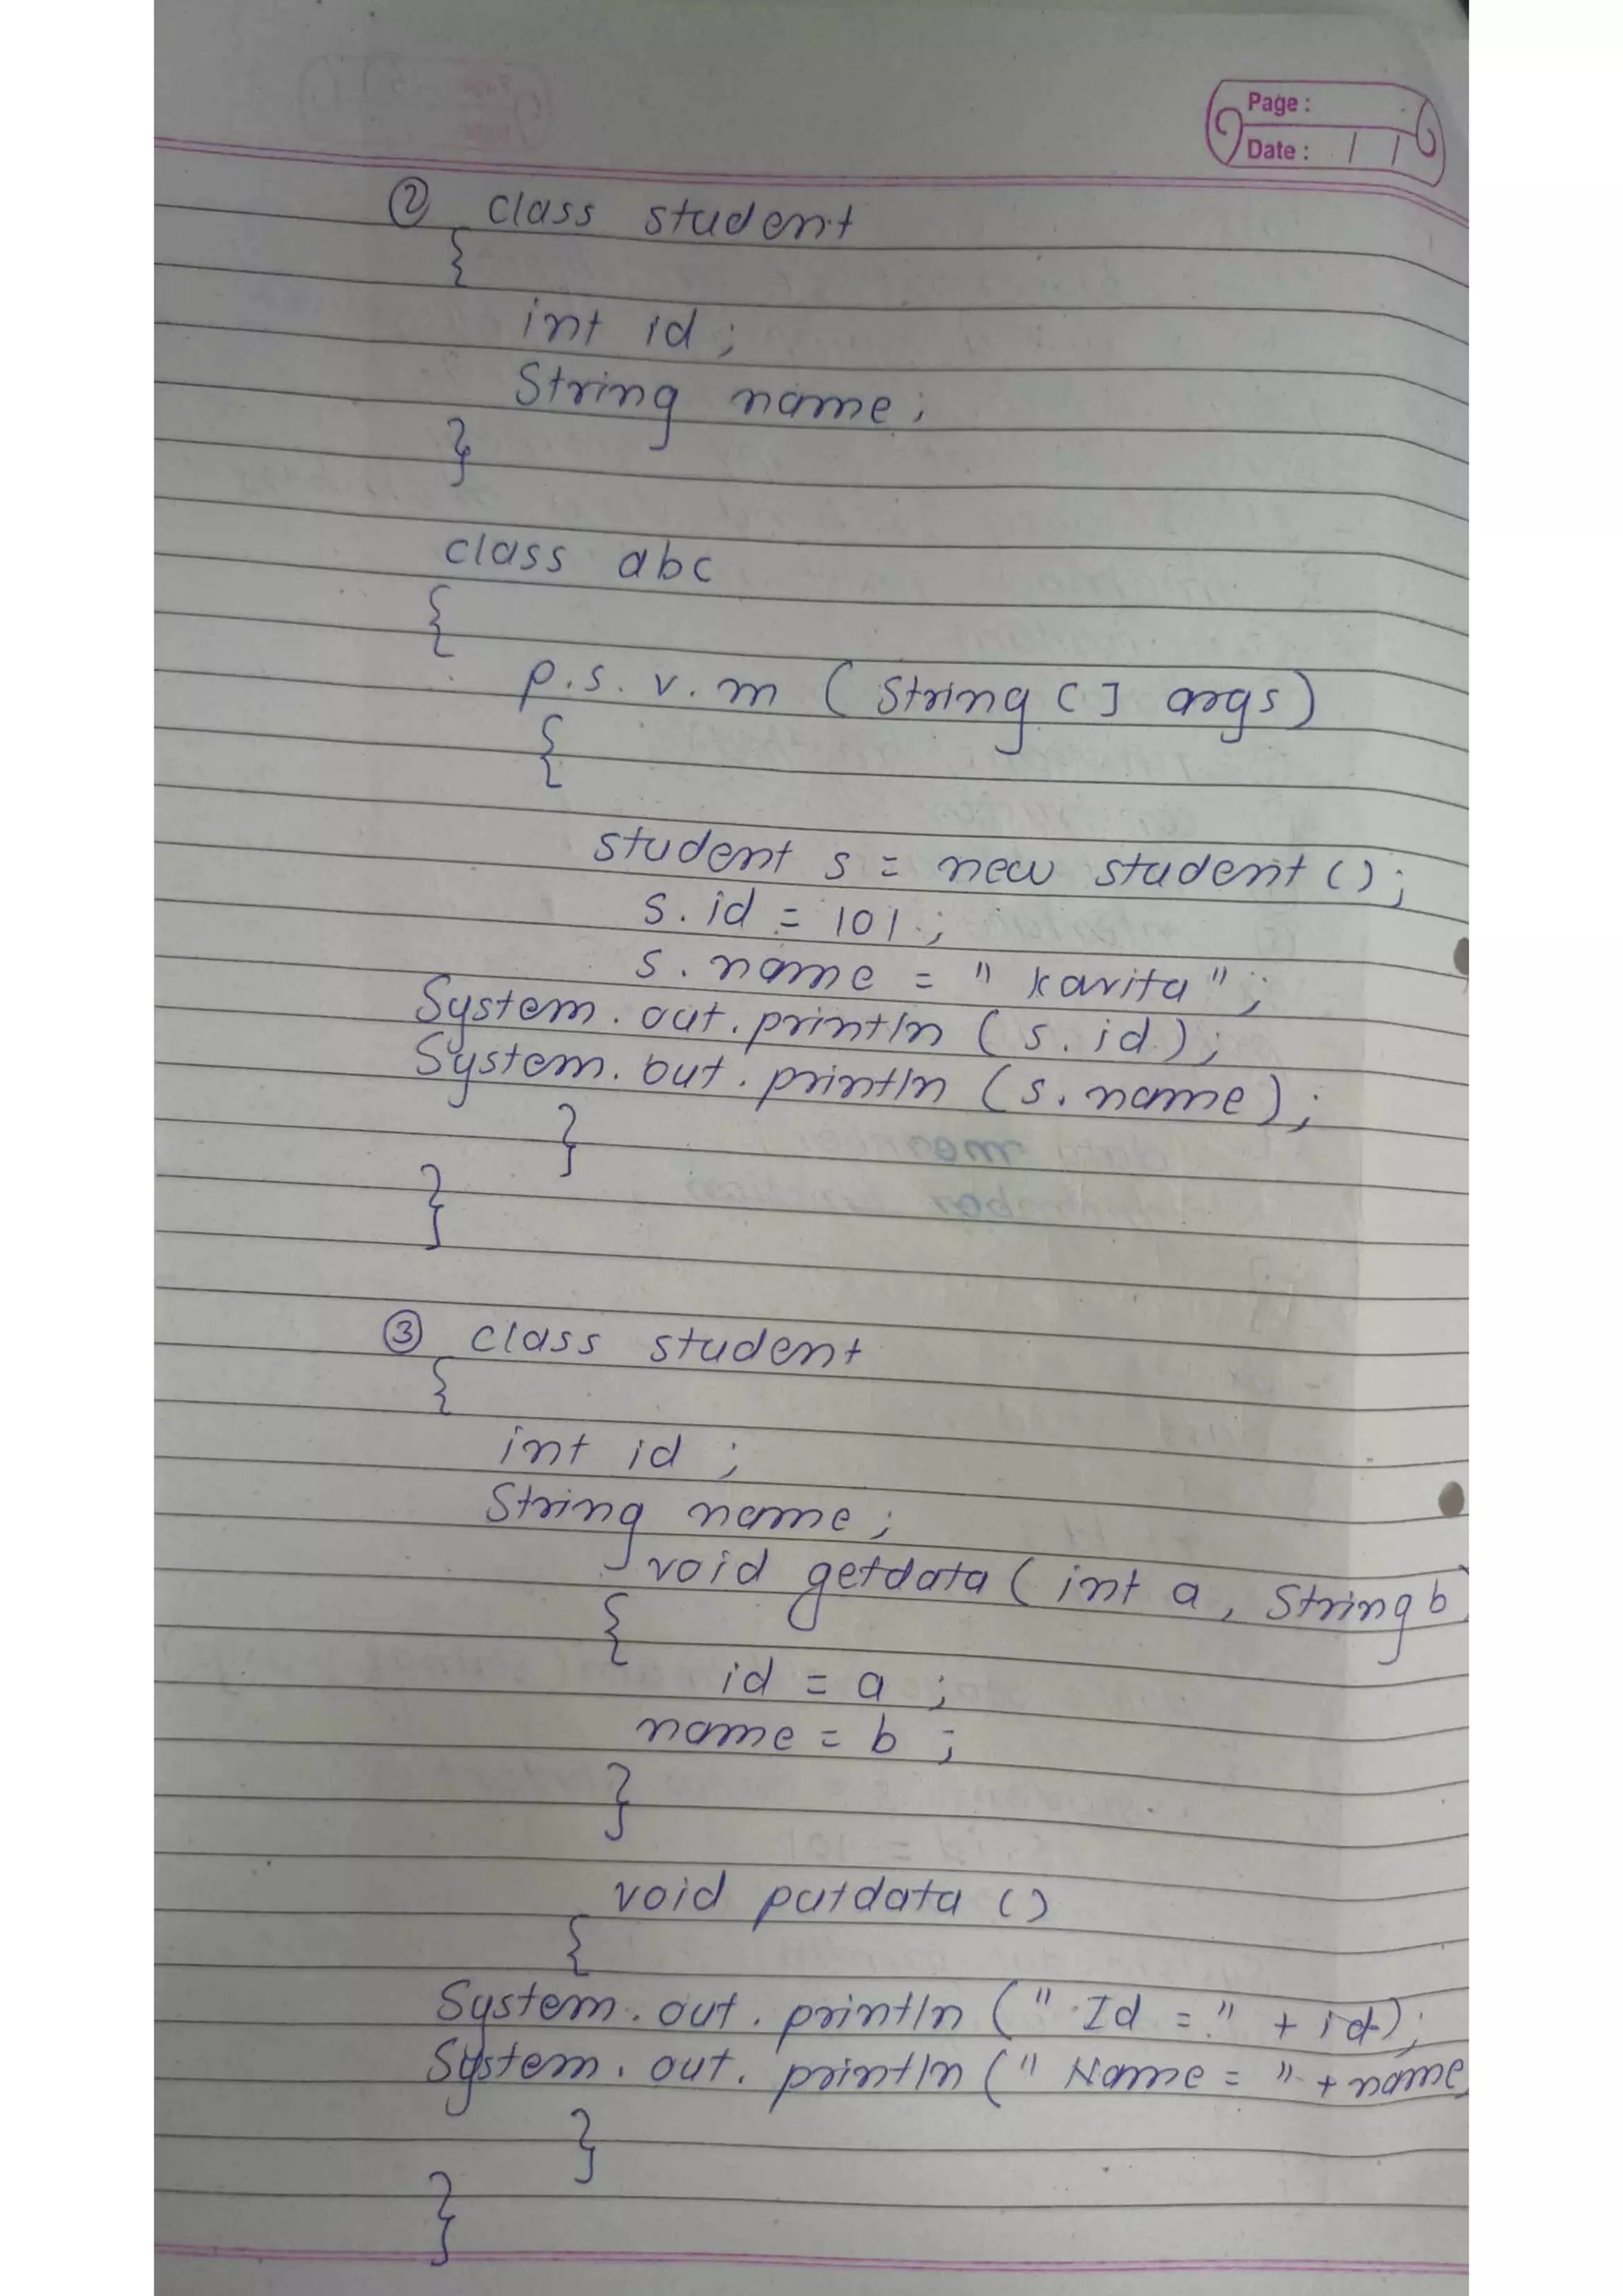 Page :
Date : / /
② class student
{
int id ;
String name ;
}
class abc
{
p.s.v.m ( String [ ] args )
{
student s = new student ( ) ;
s.id = 101 ;
s.name = " kavita " ;
System.out.println ( s.id ) ;
System.out.println ( s.name ) ;
}
}
③ class student
{
int id ;
String name ;
void getdata ( int a , String b )
{
id = a ;
name = b ;
}
void putdata ( )
{
System.out.println ( " Id = " + id ) ;
System.out.println ( " Name = " + name )
}
}